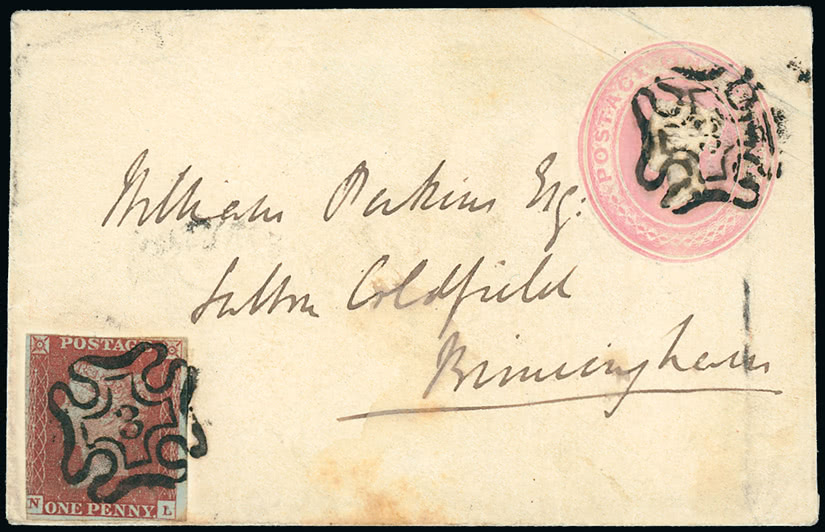 POSTAGE
3
William Perkins Esq:
Sutton Coldfield
Birmingham
POSTAGE
3
N ONE PENNY. L